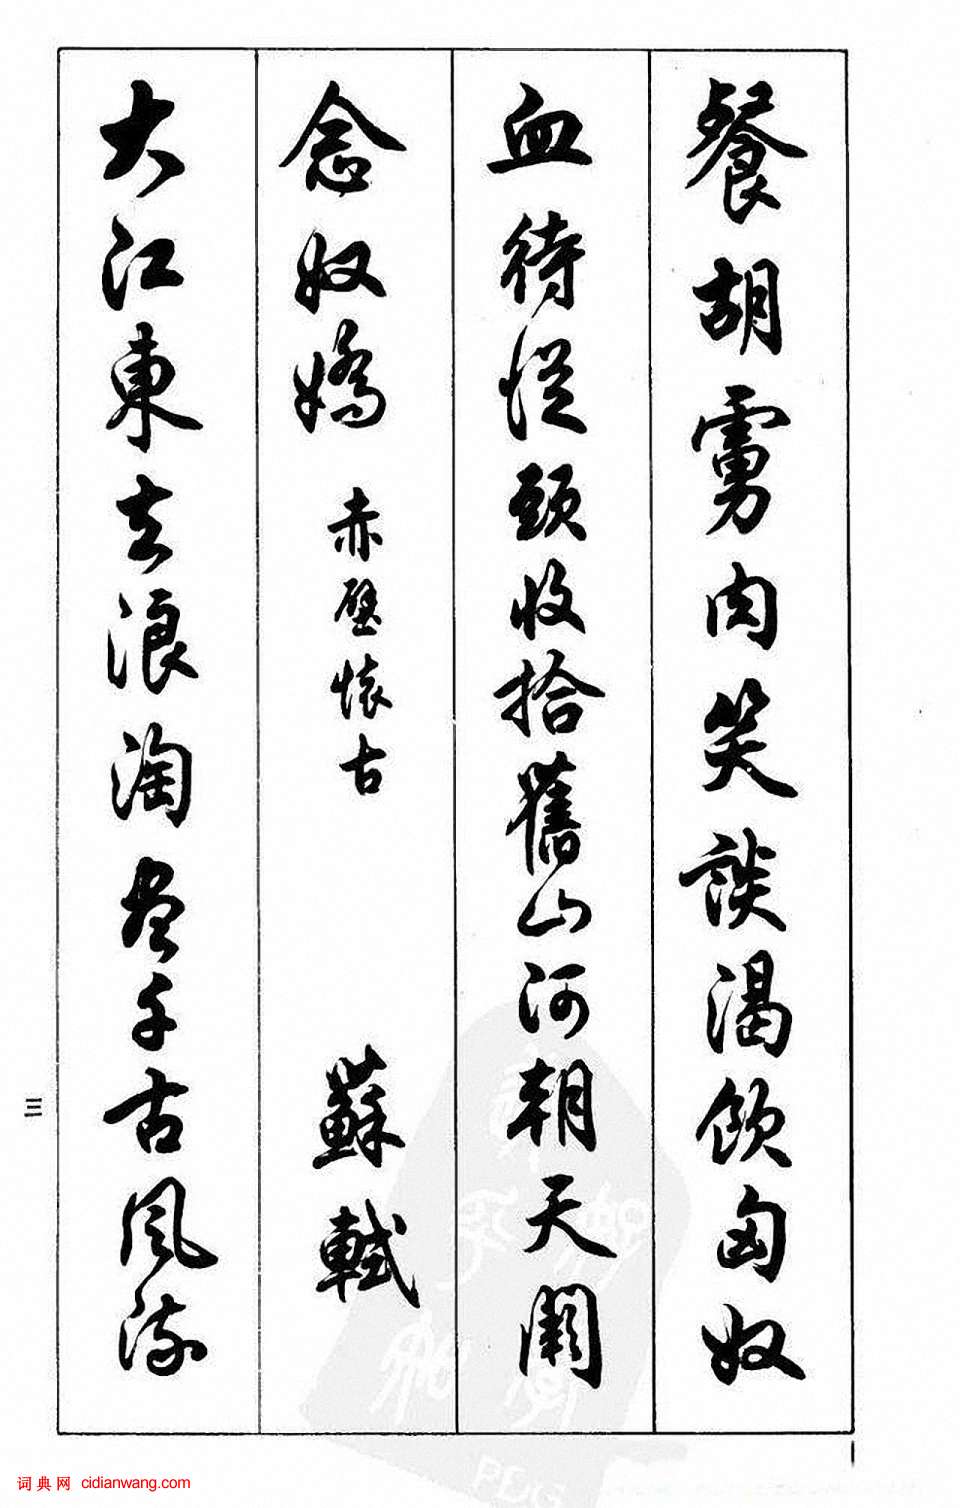 餐胡虜肉笑談渴飲匈奴
血待從頭收拾舊山河朝天闕
念奴嬌 赤壁懷古 蘇軾
大江東去浪淘盡千古風流
三
词典网 cidianwang.com